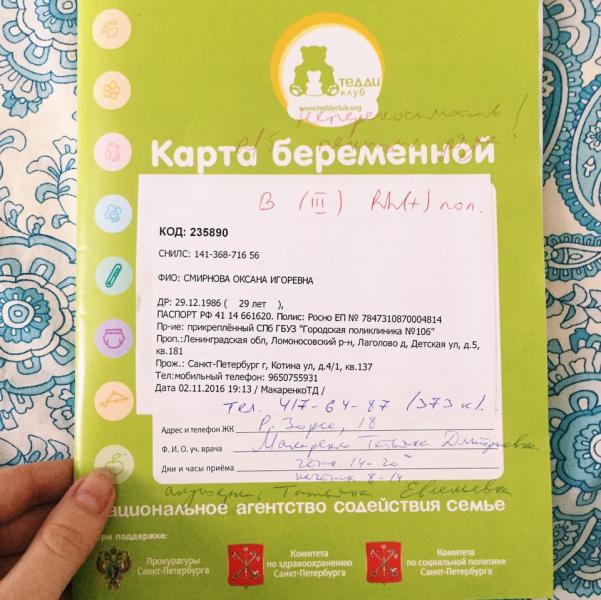 ТЕДДИ
КЛУБ
www.teddyclub.org
Непереносимость!
Карта беременной
B (III) Rh(+) пол.
КОД: 235890
СНИЛС: 141-368-716 56
ФИО: СМИРНОВА ОКСАНА ИГОРЕВНА
ДР: 29.12.1986 ( 29 лет ),
ПАСПОРТ РФ 41 14 661620. Полис: Росно ЕП № 7847310870004814
Пр-ие: прикреплённый СПб ГБУЗ "Городская поликлиника №106"
Проп.:Ленинградская обл, Ломоносовский р-н, Лаголово д, Детская ул, д.5,
кв.181
Прож.: Санкт-Петербург г, Котина ул, д.4/1, кв.137
Тел:мобильный телефон: 9650755931
Дата 02.11.2016 19:13 / МакаренкоТД /
Тел. 417-64-87 (373 к).
Адрес и телефон ЖК Р. Зорге, 18
Ф. И. О. уч. врача Макаренко Татьяна Дмитриевна
Дни и часы приёма чётн. 14-20
нечётн. 8-14
акушерка: Татьяна Евгеньевна
Национальное агентство содействия семье
При поддержке:
Прокуратуры
Санкт-Петербурга
Комитета
по здравоохранению
Санкт-Петербурга
Комитета
по социальной политике
Санкт-Петербурга